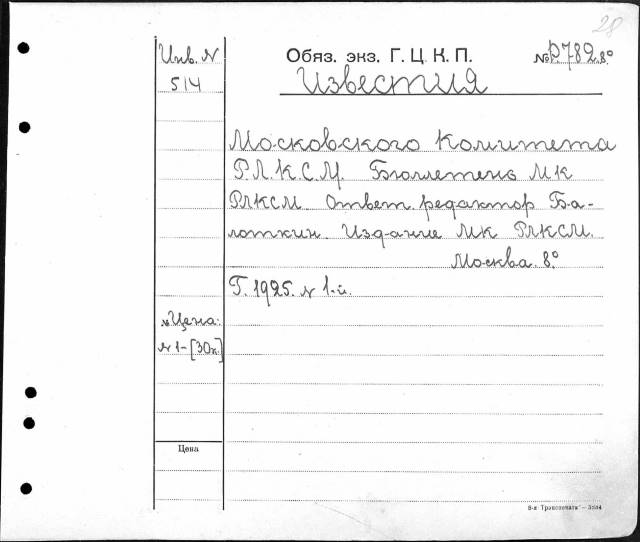 28
Инв. N
514
Обяз. экз. Г. Ц. К. П.
№ Р782 8°
Известия
Московского Комитета
Р.Л.К.С.М. Бюллетень МК
РЛКСМ. Ответ. редактор Ба-
лоткин. Издание МК РЛКСМ.
Москва. 8°
Г. 1925. N 1-й.
Цена:
N 1 - [30к.]
Цена